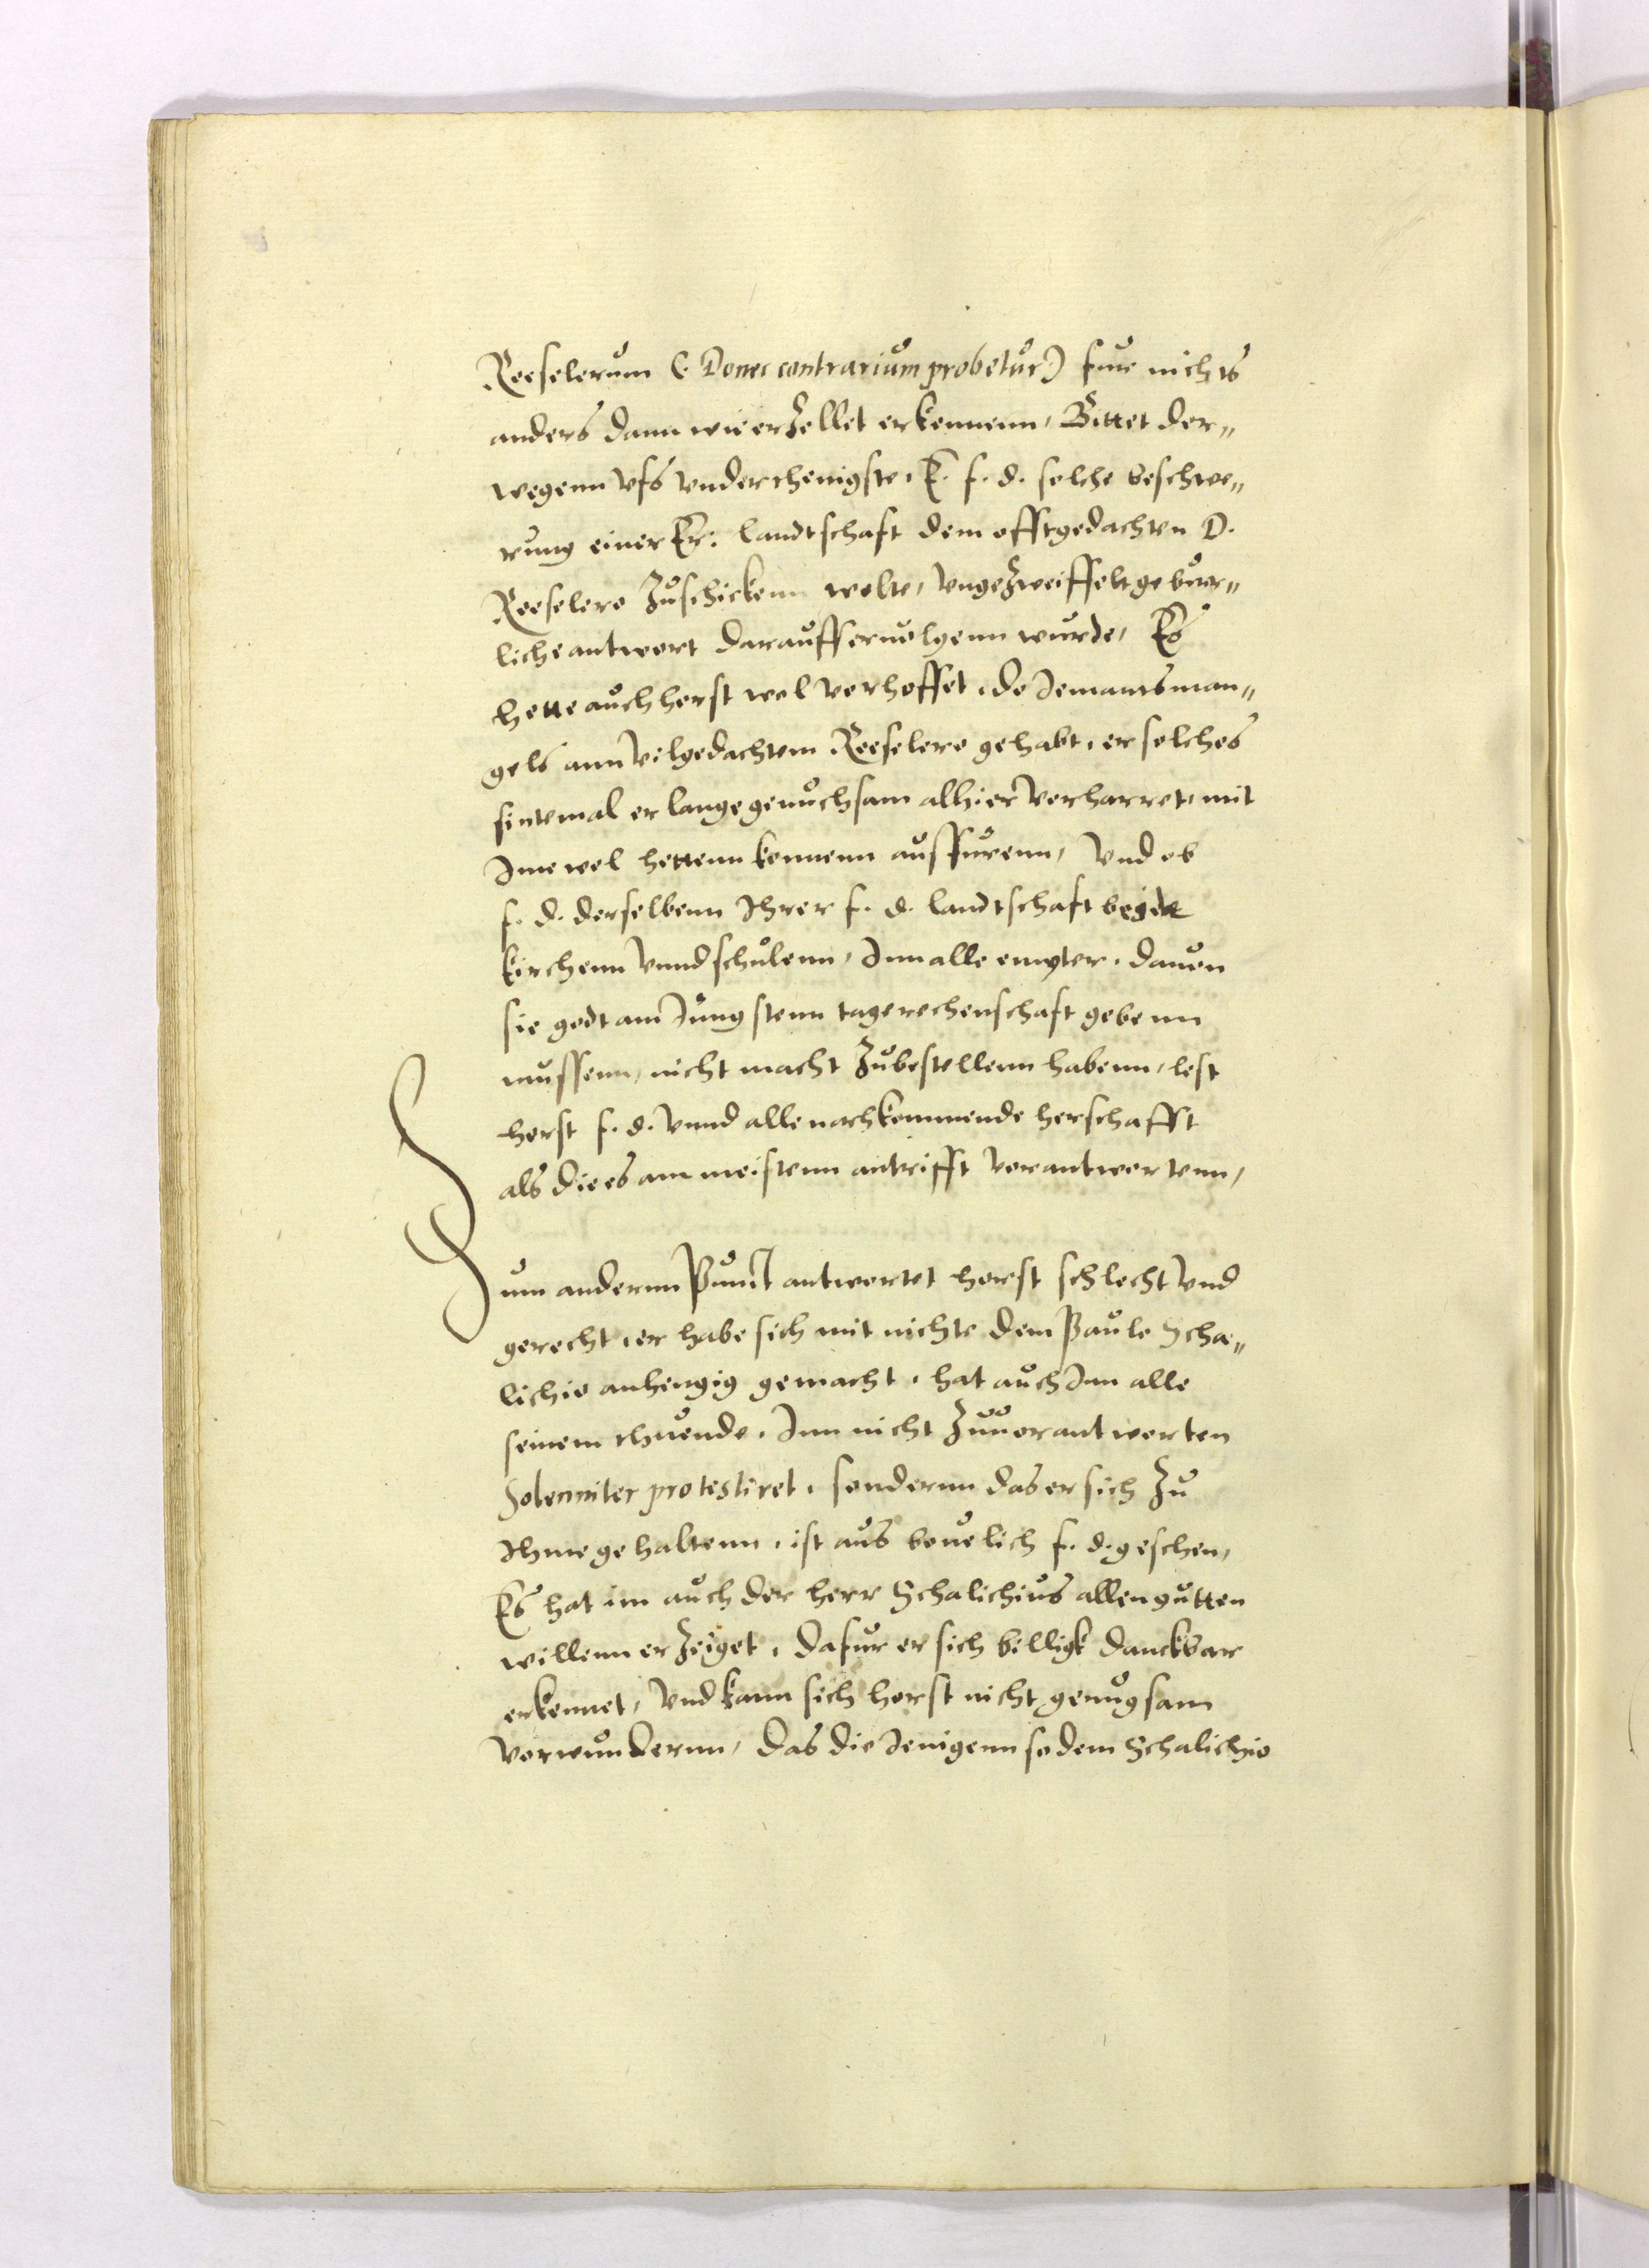 Roeselerum (Donec contrarium probetur) fur nichts
anders dann wie erzellet erkennenn, Bittet der„
wegenn vfs vnderthenigste, E. f. d. solche beschwe„
rung einer Er: landtschaft dem offtgedachten D.
Roeselero zuschickenn wolte, vngezweiffelt gebur„
liche antwort darauff ervolgenn wurde, Es
hette auch horst wol verhoffet, do Jemants man„
gels ann vilgedachtem Roeselero gehabt, er solches
sintemal er lange genuchsam alhier verharret, mit
Ime wol hettenn konnenn ausfurenn, Vnd ob
f. d. derselbenn Ihrer f. d. landtschaft beide
kirchenn vnnd schulenn, Inn alle empter, dauon
sie godt am Jungstenn tage rechenschaft gebenn
mussenn, nicht macht zubestellenn habenn, lest
horst f. d. vnnd alle nachkommende herschafft
als die es am meistenn antrifft verantwortenn,
Zum andernn Punct antwortet horst schlecht vnd
gerecht, er habe sich mit nichte dem Paulo Scha„
lichio anhengig gemacht, hat auch Inn alle
seinem thuende, Inn nicht zuuorantworten
Solenniter protestiret, sondernn das er sich zu
Ihme gehaltenn, ist aus beuelich f. d. geschen,
Es hat im auch der herr Schalichius allen gutten
willenn erzeiget, dafur er sich billigk danckbar
erkennet, Vnd kann sich horst nicht genugsam
verwundernn, das die Jenigenn so dem Schalichio